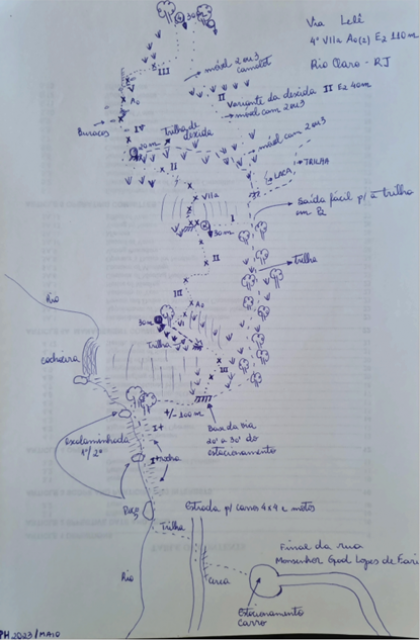 Via Lelê
4º VIIa A0(2) E2 110m
Rio Claro - RJ
30m
III
móvel 2 ou 3
camelot
II
Variante da descida II E2 40m
móvel com 2 ou 3
A0
Buracos
IV
Trilha de
descida
20m
II
móvel com 2 ou 3
TRILHA
LACA
VIIa
I
Saída fácil p/ a trilha
em P2
30m
II
Trilha
III
Rio
A0
30m
VI
Trilha
Cachoeira
III
+/- 200m
I+
Base da via
20' a 30' do
estacionamento
Escalaminhada
1º/2º
I+ rocha
Poço
Estrada p/ carros 4x4 e motos
Trilha
Final da rua
Monsenhor Gual Lopes de Fari
Rio
cerca
Estacionamento
Carro
PH 2023/MAIO